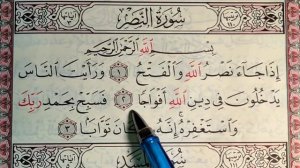 سُورَةُ النَّصْرِ
بِسْمِ اللَّهِ الرَّحْمَٰنِ الرَّحِيمِ
إِذَا جَاءَ نَصْرُ اللَّهِ وَالْفَتْحُ ١ وَرَأَيْتَ النَّاسَ
يَدْخُلُونَ فِي دِينِ اللَّهِ أَفْوَاجًا ٢ فَسَبِّحْ بِحَمْدِ رَبِّكَ
وَاسْتَغْفِرْهُ إِنَّهُ كَانَ تَوَّابًا ٣
سُورَةُ